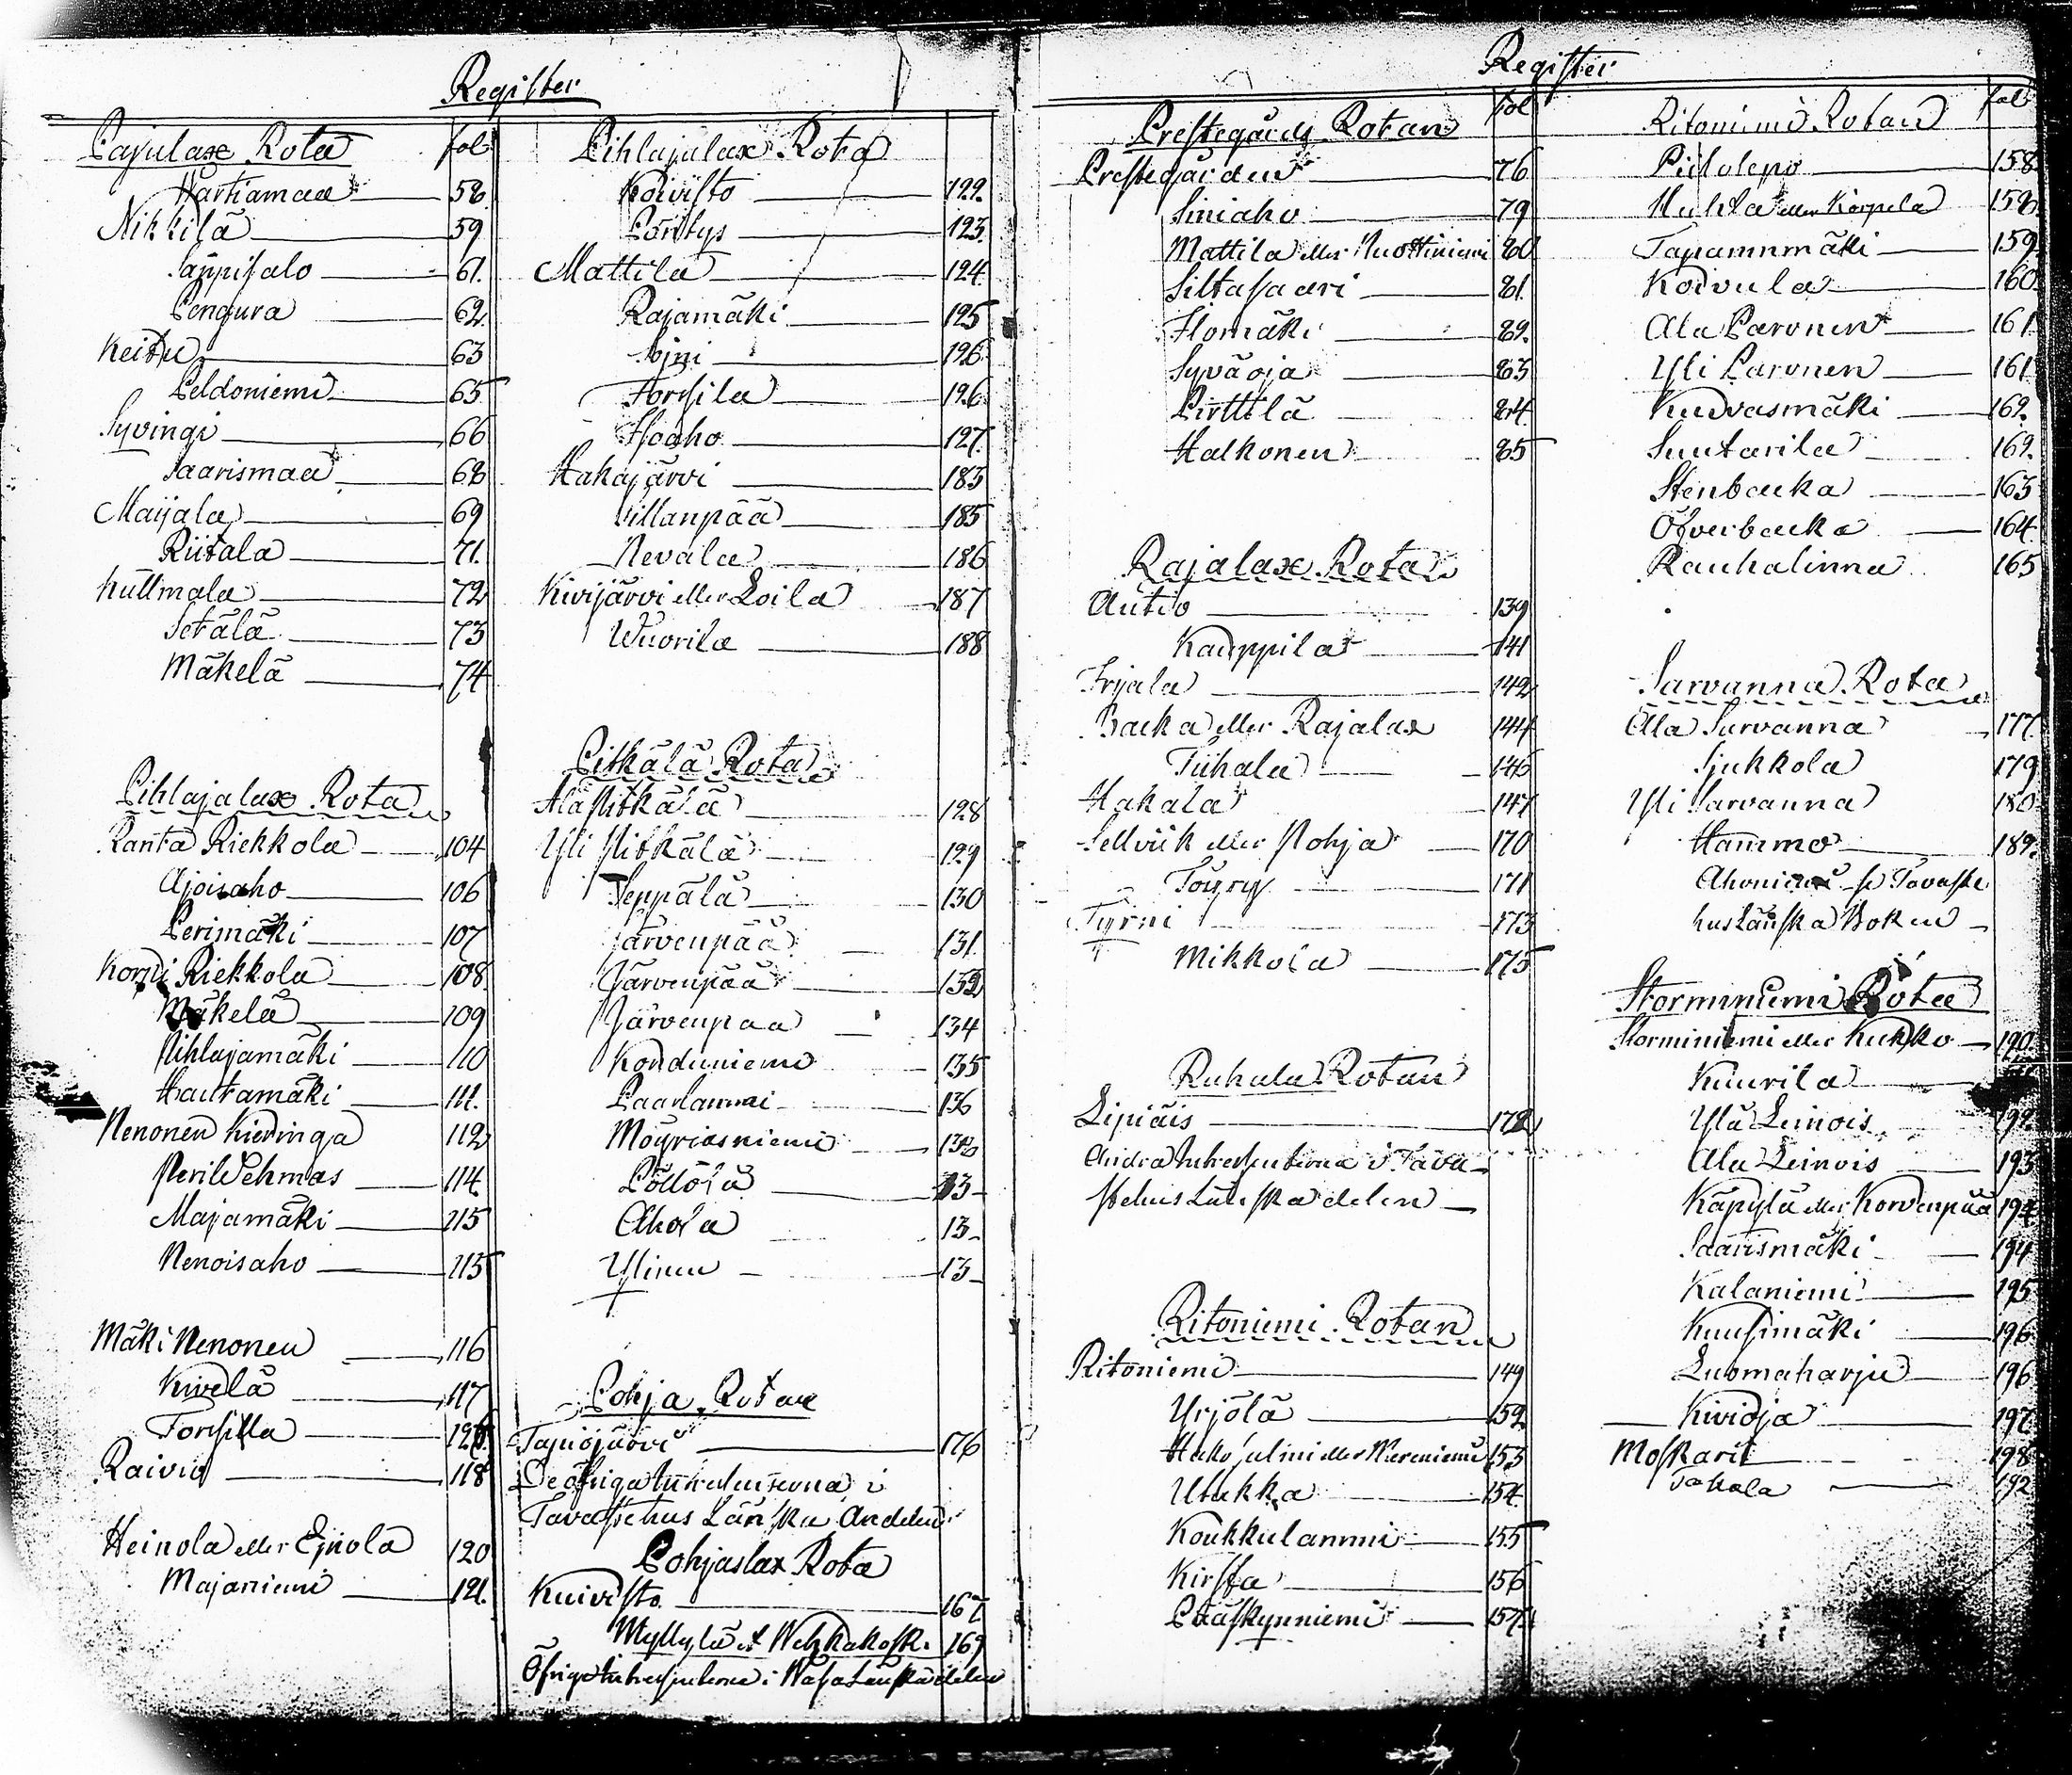 Register
Pajulax Rota fol:
Hartiamaa 58
Nikkilä 59
Säppisalo 61.
Pengura 62
Keitu 63
Peldoniemi 65
Syvingi 66
Saarismaa 68
Maijala 69
Riitala 71.
Kuttmala 72
Setälä 73
Mäkelä 74
Pihlajalax Rota
Ranta Riekkola 104
Ajoisaho 106
Perimäki 107
Korpi Riekkola 108
Mäkelä 109
Pihlajamäki 110
Hautamäki 111.
Nenonen Kieringa 112
Peril Lehmas 114.
Majamäki 115
Nenoisaho 115
Mäki Nenonen 116
Kivelä 117
Forssilla
Raivio 118
Heinola eller Ejnola 120
Majaniemi 121.
Pihlajalax Rota
Koivisto 122.
Pöntys 123.
Mattila 124.
Rajamäki 125
126
Forssila 126
Hoaho 127.
Hakajärvi 183
Sillanpää 185
Nevala 186
Kivijärvi eller Loila 187
Wuorila 188
Pitkälä Rota
Ala Pitkälä 128
Yli Pitkälä 129
Seppälä 130
Järvenpää 131
Järvenpää 132
Järvenpaa 134
Konduniemi 135
Paarlammi 136
Möyriasniemi
Pöllölä 13
Ahola 13
Ylinen 13
Pohja Rotan
Tapiojärvi 176
De öfriga Intressenterna i
Tavastehus Länska Andelen
Pohjaslax Rota
Kuivisto 167
Myllylä et Wehkakoski 169
Öfriga Intressenterna i Wasa Länska delen
Register
Prestegårds Rotan fol
Prestegården 76
Siniaho 79
Mattila eller Nuottiniemi 80
Siltasaari 81.
Ilomäki 82.
Syväoja 83
Pirttilä 84.
Halkonen 85
Rajalax Rota
Autio 139
Kauppila 141
Irjala 142
Backa eller Rajalax 144
Tiihala 146
Hakala 147
Sellviik eller Pohja 170
Töyry 171
Tyrni 173
Mikkola 175
Ruhala Rotan
Lipiäis 172
Andra Intressenterna i Tava-
stehus Länska delen
Ritoniemi Rotan
Ritoniemi 149
Yrjölä 152.
Hako Salmi eller Wereniemi 153
Utukka 154
Koukkulammi 155
Kirsta 156
Pääskynniemi 157.
Ritoniemi Rotan fol:
Pitolepo 158
Huhta eller Korpela 158
Tapamnmäki 159
Koivula 160
Ala Paronen 161.
Yli Paronen 161
Kuivasmäki 162.
Suutarila 162.
Stenbacka 163
Öfverbacka 164.
Rauhalinna 165
Sarvanna Rota
Ala Sarvanna 177.
Sjukkola 179
Yli Sarvanna 180
Hammo 182.
Ahoniemi se Tavaste
hus Länska Boken
Storminiemi Rota
Storminiemi eller Kukko 190.
Kuurila
Ylä Leinois 192
Ala Leinois 193
Käpylä eller Korvenpää 194
Saarismäki 194
Kalaniemi 195
Kuusimäki 196
Luomaharju 196
Kivioja 197
Moskarit 198
Tokola 192